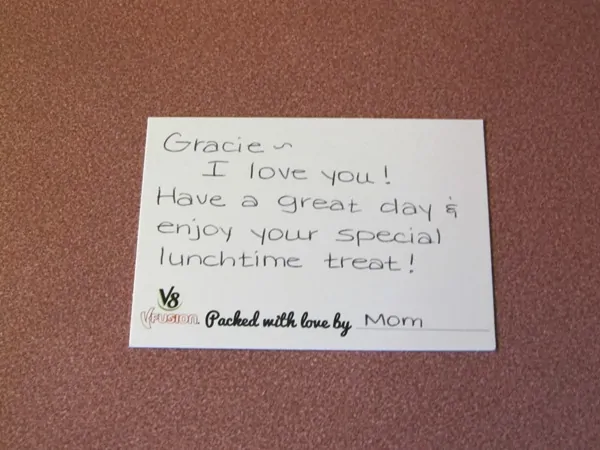 Gracie~
I love you!
Have a great day &
enjoy your special
lunchtime treat!
V8
V Fusion Packed with love by Mom